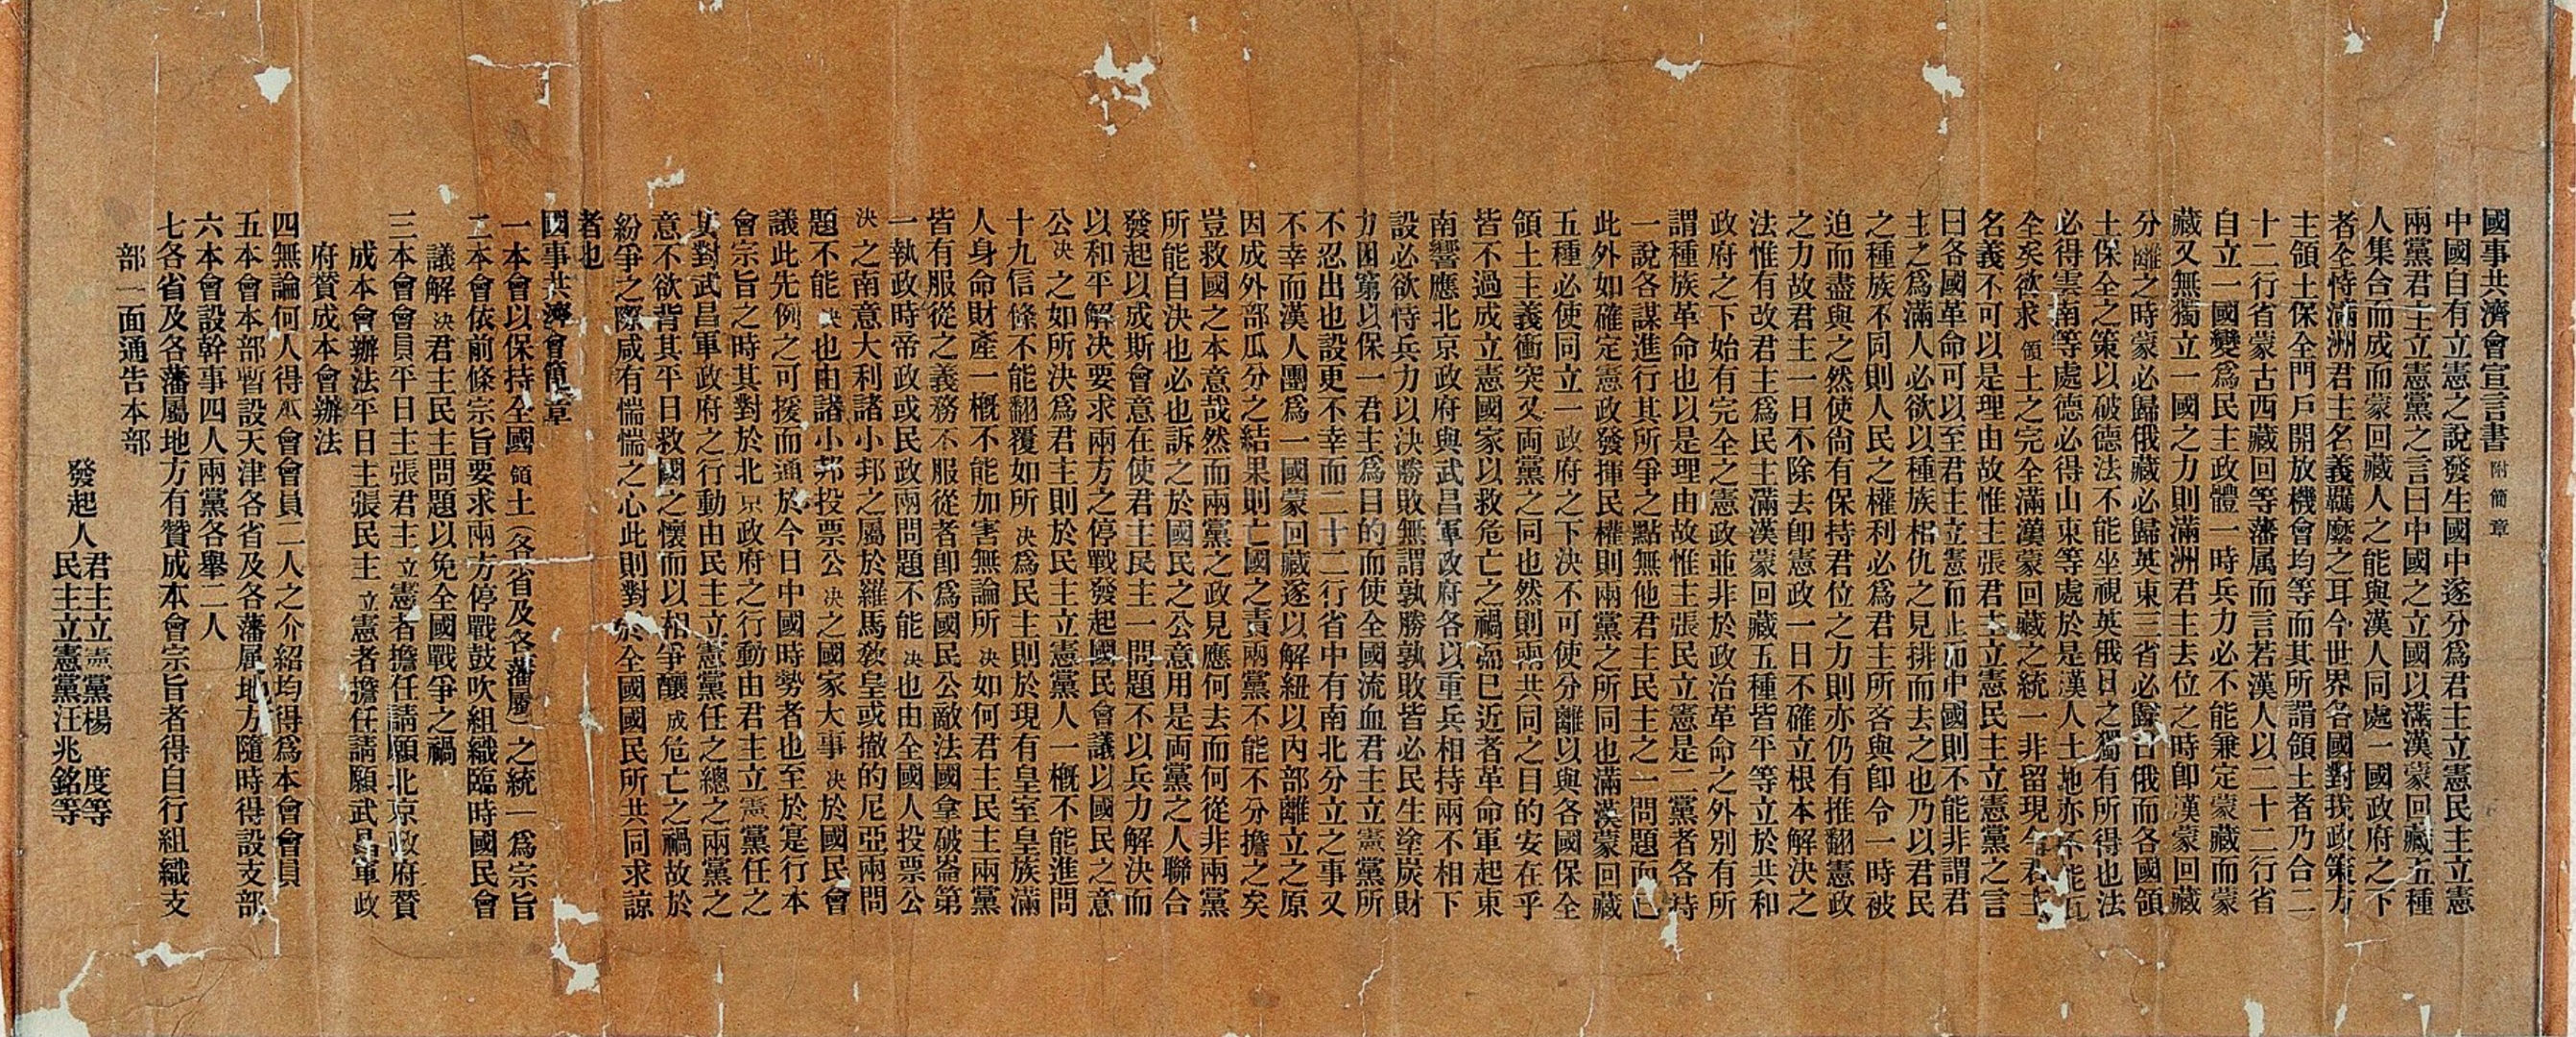 國事共濟會宣言書 附簡章
中國自有立憲之說發生國中遂分爲君主立憲民主立憲
兩黨君主立憲黨之言曰中國之立國以滿漢蒙回藏五種
人集合而成而蒙回藏人之能與漢人同處一國政府之下
者全恃滿洲君主名義羈縻之耳今世界各國對我政策方
主領土保全門戶開放機會均等而其所謂領土者乃合二
十二行省蒙古西藏回等藩属而言若漢人以二十二行省
自立一國變爲民主政體一時兵力必不能兼定蒙藏而蒙
藏又無獨立一國之力則滿洲君主去位之時卽漢蒙回藏
分離之時蒙必歸俄藏必歸英東三省必歸日俄而各國領
土保全之策以破德法不能坐視英俄日之獨有所得也法
必得雲南等處德必得山東等處於是漢人土地亦不能瓦
全矣欲求領土之完全滿漢蒙回藏之統一非留現今君主
名義不可以是理由故惟主張君主立憲民主立憲黨之言
曰各國革命可以至君主立憲而止而中國則不能非謂君
主之爲滿人必欲以種族相仇之見排而去之也乃以君民
之種族不同則人民之權利必爲君主所吝與卽令一時被
迫而盡與之然使尙有保持君位之力則亦仍有推翻憲政
之力故君主一日不除去卽憲政一日不確立根本解決之
法惟有改君主爲民主滿漢蒙回藏五種皆平等立於共和
政府之下始有完全之憲政並非於政治革命之外別有所
謂種族革命也以是理由故惟主張民立憲是二黨者各持
一說各謀進行其所爭之點無他君主民主之一問題而已
此外如確定憲政發揮民權則兩黨之所同也滿漢蒙回藏
五種必使同立一政府之下決不可使分離以與各國保全
領土主義衝突又両黨之同也然則兩共同之目的安在乎
皆不過成立憲國家以救危亡之禍而已近者革命軍起東
南響應北京政府與武昌軍政府各以重兵相持兩不相下
設必欲恃兵力以決勝敗無謂孰勝孰敗皆必民生塗炭財
力困窮以保一君主爲目的而使全國流血君主立憲黨所
不忍出也設更不幸而二十二行省中有南北分立之事又
不幸而漢人團爲一國蒙回藏遂以解紐以內部離立之原
因成外部瓜分之結果則亡國之責兩黨不能不分擔之矣
豈救國之本意哉然而兩黨之政見應何去而何從非兩黨
所能自決也必也訴之於國民之公意用是両黨之人聯合
發起以成斯會意在使君主民主一問題不以兵力解決而
以和平解決要求兩方之停戰發起國民會議以國民之意
公決之如所決爲君主則於民主立憲黨人一概不能進問
十九信條不能翻覆如所決爲民主則於現有皇室皇族滿
人身命財產一概不能加害無論所決如何君主民主兩黨
皆有服從之義務不服從者卽爲國民公敵法國拿破崙第
一執政時帝政或民政兩問題不能決也由全國人投票公
決之南意大利諸小邦之屬於羅馬敎皇或撤的尼亞兩問
題不能決也由諸小邦投票公決之國家大事決於國民會
議此先例之可援而通於今日中國時勢者也至於寔行本
會宗旨之時其對於北京政府之行動由君主立憲黨任之
其對武昌軍政府之行動由民主立憲黨任之總之兩黨之
意不欲背其平日救國之懷而以相爭釀成危亡之禍故於
紛爭之際咸有惴惴之心此則對於全國國民所共同求諒
者也
國事共濟會簡章
一本會以保持全國領土(各省及各藩屬)之統一爲宗旨
二本會依前條宗旨要求兩方停戰鼓吹組織臨時國民會
議解決君主民主問題以免全國戰爭之禍
三本會會員平日主張君主立憲者擔任請願北京政府贊
成本會辦法平日主張民主立憲者擔任請願武昌軍政
府贊成本會辦法
四無論何人得本會會員二人之介紹均得爲本會會員
五本會本部暫設天津各省及各藩属地方隨時得設支部
六本會設幹事四人兩黨各舉二人
七各省及各藩屬地方有贊成本會宗旨者得自行組織支
部一面通告本部
發起人 君主立憲黨楊 度等
民主立憲黨汪兆銘等